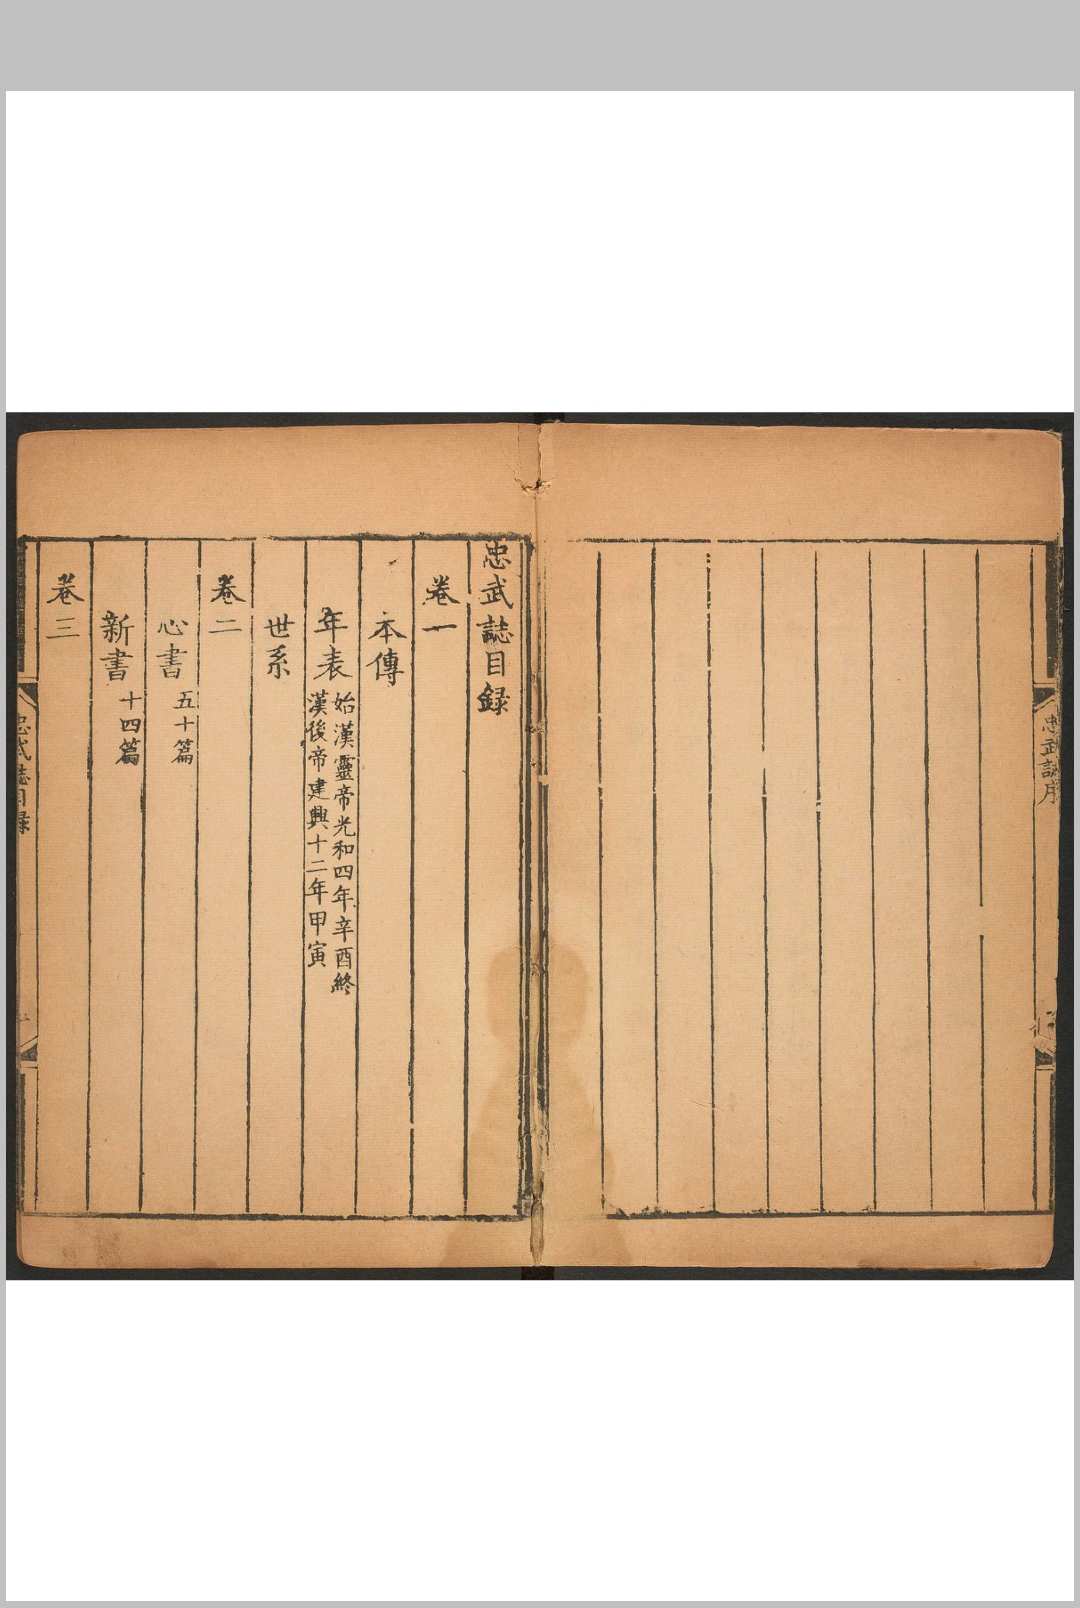 忠武誌序
忠武誌目録
卷一
本傳
年表 始漢靈帝光和四年辛酉終
漢後帝建興十二年甲寅
世系
卷二
心書 五十篇
新書 十四篇
卷三
忠武誌目録